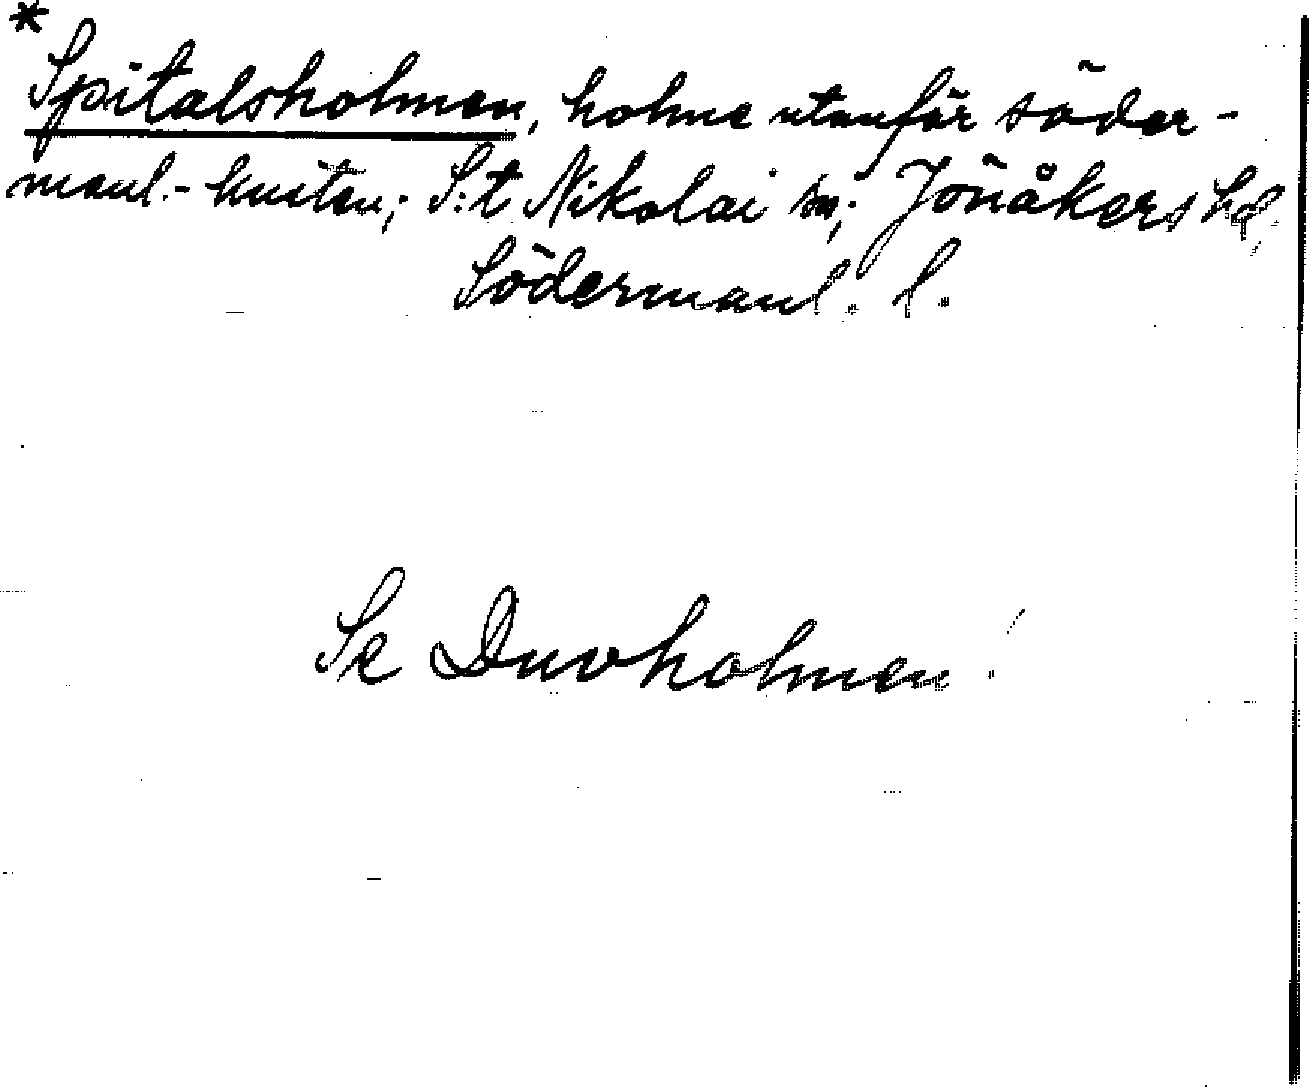 *
Spitalsholmen, holme utanför söder-
manl.-kusten; S:t Nikolai sn; Jönåkers hd,
Södermanl. l.
Se Duvholmen!